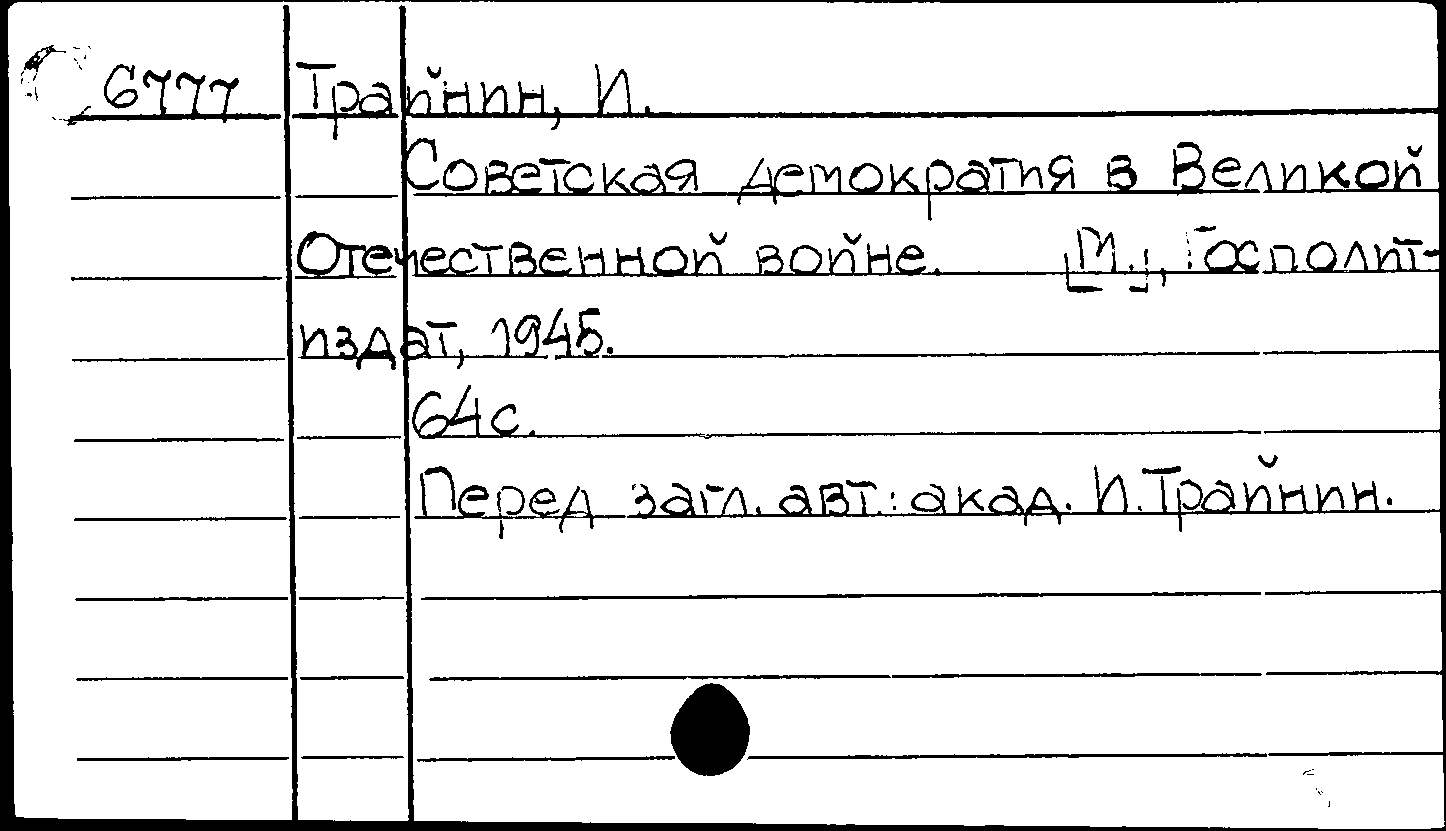 6777 Трайнин, И.
Советская демократия в Великой
Отечественной войне. [М.], Госполит-
издат, 1945.
64с.
Перед загл. авт.: акад. И. Трайнин.